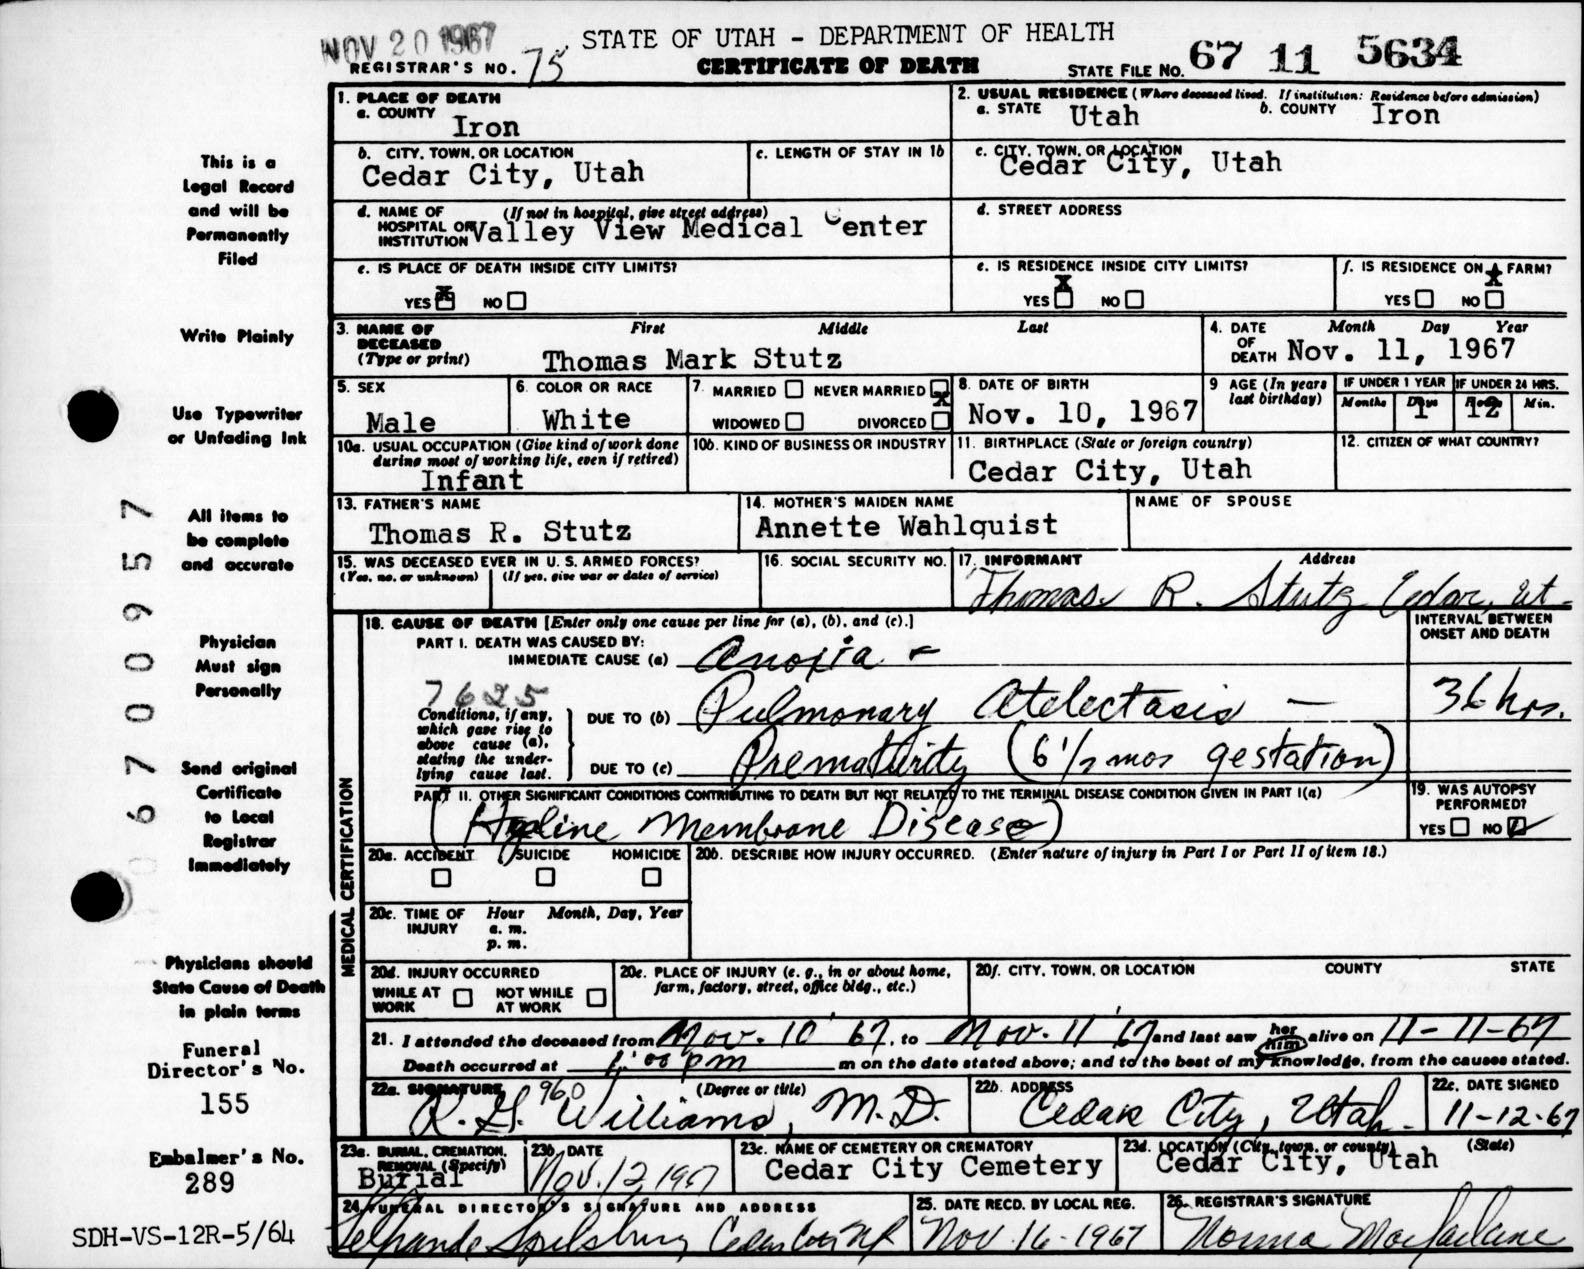 NOV 20 1967
STATE OF UTAH – DEPARTMENT OF HEALTH
REGISTRAR'S NO. 75
CERTIFICATE OF DEATH
STATE FILE NO. 67 11 5634
1. PLACE OF DEATH
a. COUNTY
Iron
2. USUAL RESIDENCE (Where deceased lived. If institution: Residence before admission)
a. STATE Utah b. COUNTY Iron
b. CITY, TOWN, OR LOCATION
Cedar City, Utah
c. LENGTH OF STAY IN 1b
c. CITY, TOWN, OR LOCATION
Cedar City, Utah
d. NAME OF HOSPITAL OR INSTITUTION (If not in hospital, give street address)
Valley View Medical Center
d. STREET ADDRESS
e. IS PLACE OF DEATH INSIDE CITY LIMITS?
YES X NO
e. IS RESIDENCE INSIDE CITY LIMITS?
YES X NO
f. IS RESIDENCE ON A FARM?
YES NO X
3. NAME OF DECEASED (Type or print)
First Middle Last
Thomas Mark Stutz
4. DATE OF DEATH Month Day Year
Nov. 11, 1967
5. SEX
Male
6. COLOR OR RACE
White
7. MARRIED NEVER MARRIED X
WIDOWED DIVORCED
8. DATE OF BIRTH
Nov. 10, 1967
9 AGE (In years last birthday)
IF UNDER 1 YEAR
Months Days
1
IF UNDER 24 HRS.
Hours Min.
12
10a. USUAL OCCUPATION (Give kind of work done during most of working life, even if retired)
Infant
10b. KIND OF BUSINESS OR INDUSTRY
11. BIRTHPLACE (State or foreign country)
Cedar City, Utah
12. CITIZEN OF WHAT COUNTRY?
13. FATHER'S NAME
Thomas R. Stutz
14. MOTHER'S MAIDEN NAME
Annette Wahlquist
NAME OF SPOUSE
15. WAS DECEASED EVER IN U. S. ARMED FORCES?
(Yes, no, or unknown) (If yes, give war or dates of service)
16. SOCIAL SECURITY NO.
17. INFORMANT Address
Thomas R. Stutz Cedar, Ut-
18. CAUSE OF DEATH [Enter only one cause per line for (a), (b), and (c).]
INTERVAL BETWEEN ONSET AND DEATH
PART I. DEATH WAS CAUSED BY:
IMMEDIATE CAUSE (a) Anoxia -
7625
Conditions, if any, which gave rise to above cause (a), stating the underlying cause last.
DUE TO (b) Pulmonary Atelectasis —
36 hrs.
DUE TO (c) Prematurity (6 1/2 mos gestation)
PART II. OTHER SIGNIFICANT CONDITIONS CONTRIBUTING TO DEATH BUT NOT RELATED TO THE TERMINAL DISEASE CONDITION GIVEN IN PART I(a)
(Hyaline Membrane Disease)
19. WAS AUTOPSY PERFORMED?
YES NO ✓
20a. ACCIDENT SUICIDE HOMICIDE
20b. DESCRIBE HOW INJURY OCCURRED. (Enter nature of injury in Part I or Part II of item 18.)
20c. TIME OF INJURY Hour Month, Day, Year
a. m.
p. m.
20d. INJURY OCCURRED
WHILE AT WORK NOT WHILE AT WORK
20e. PLACE OF INJURY (e. g., in or about home, farm, factory, street, office bldg., etc.)
20f. CITY, TOWN, OR LOCATION COUNTY STATE
21. I attended the deceased from Nov. 10 '67, to Nov. 11 '67 and last saw her him alive on 11-11-67
Death occurred at 1:00 pm m on the date stated above; and to the best of my knowledge, from the causes stated.
22a. SIGNATURE (Degree or title)
960
R. G. Williams, M.D.
22b. ADDRESS
Cedar City, Utah.
22c. DATE SIGNED
11-12-67
23a. BURIAL, CREMATION, REMOVAL (Specify)
Burial
23b. DATE
Nov. 12 1967
23c. NAME OF CEMETERY OR CREMATORY
Cedar City Cemetery
23d. LOCATION (City, town, or county) (State)
Cedar City, Utah
24. FUNERAL DIRECTOR'S SIGNATURE AND ADDRESS
Spilsbury Cedar City
25. DATE RECD. BY LOCAL REG.
Nov. 16-1967
26. REGISTRAR'S SIGNATURE
Norma Macfarlane
MEDICAL CERTIFICATION
This is a
Legal Record
and will be
Permanently
Filed
Write Plainly
Use Typewriter
or Unfading Ink
All items to
be complete
and accurate
Physician
Must sign
Personally
Send original
Certificate
to Local
Registrar
Immediately
Physicians should
State Cause of Death
in plain terms
Funeral
Director's No.
155
Embalmer's No.
289
SDH-VS-12R-5/64
67 0 0 9 5 7